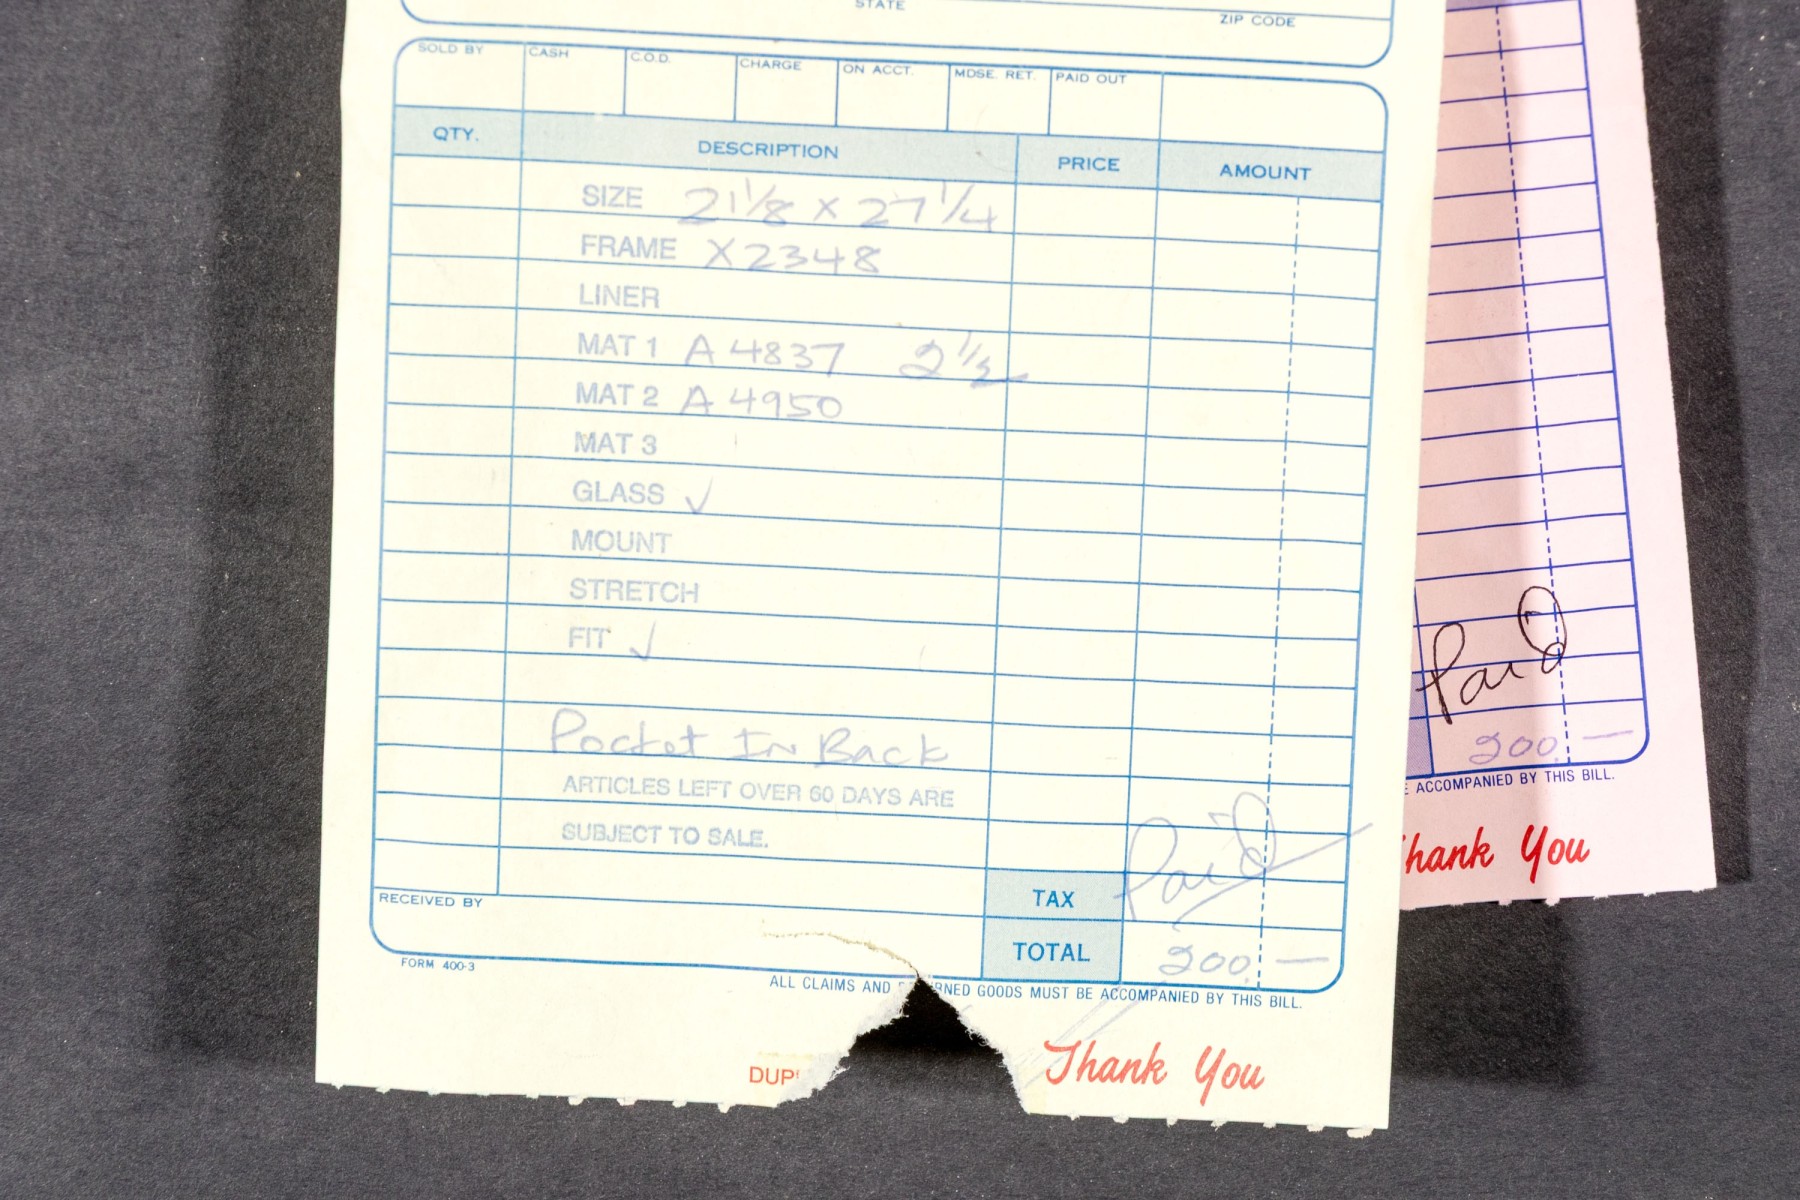 STATE ZIP CODE
SOLD BY CASH C.O.D. CHARGE ON ACCT. MDSE. RET. PAID OUT
QTY. DESCRIPTION PRICE AMOUNT
SIZE 21 1/8 X 27 1/4
FRAME X2348
LINER
MAT 1 A 4837 2 1/2
MAT 2 A 4950
MAT 3
GLASS ✓
MOUNT
STRETCH
FIT ✓
Pocket In Back
ARTICLES LEFT OVER 60 DAYS ARE
SUBJECT TO SALE.
Paid
TAX
RECEIVED BY
TOTAL 200 —
FORM 400-3
ALL CLAIMS AND RNED GOODS MUST BE ACCOMPANIED BY THIS BILL.
DUP
Thank You
Paid
200 —
ACCOMPANIED BY THIS BILL.
hank You